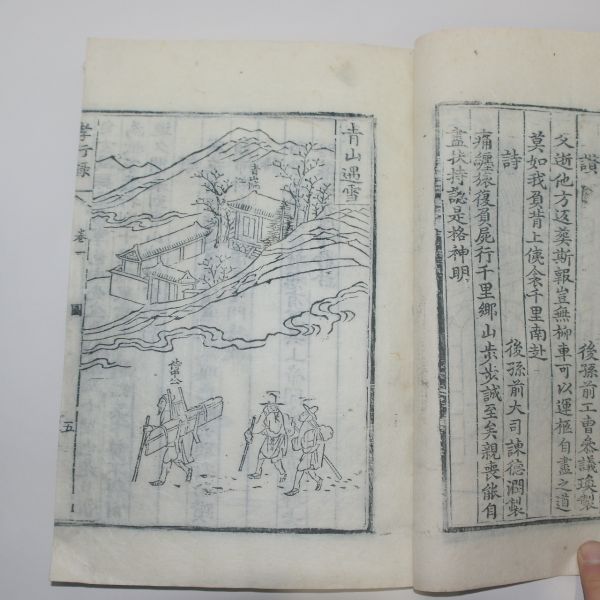 讃
後孫前工曹叅議璿製
父逝他方返葬斯報豈無柳車可以運柩自盡之道
莫如我負背上僾衾千里南赴
詩
後孫前大司諫德潤製
痛纏猿復負屍行千里鄉山步步誠至矣親喪能自
盡扶持認是格神明
青山遇雪
青山
孝行錄
卷一
圖
五